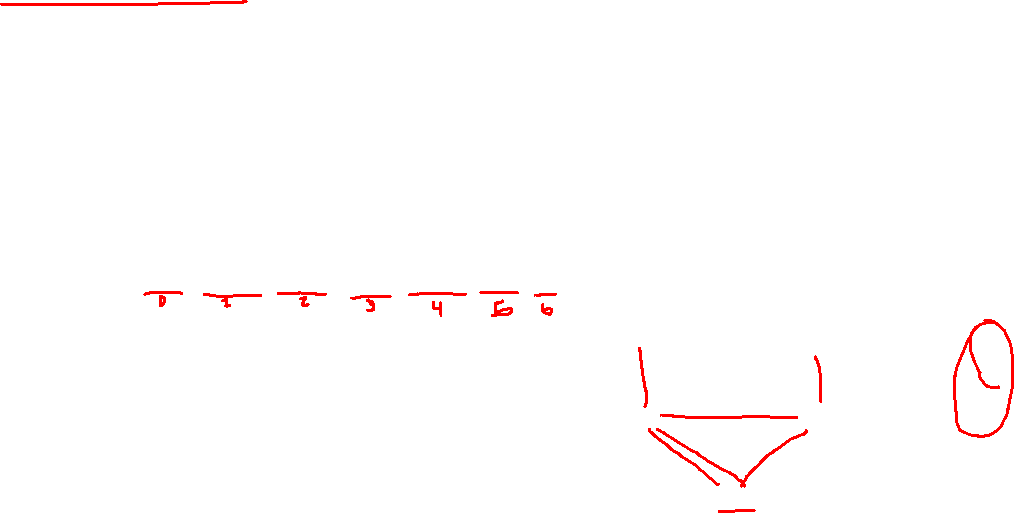 0 1 2 3 4 5 6